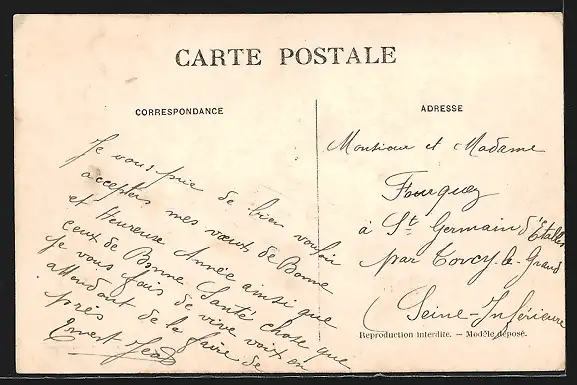 CARTE POSTALE
CORRESPONDANCE
Je vous prie de bien vouloir
accepter mes vœux de Bonne
et Heureuse Année ainsi que
ceux de Bonne Santé chose que
Je vous fais de vive voix en
attendant de le faire de
près
Ernest
ADRESSE
Monsieur et Madame
Fourquez
à St Germain d'Étables
par Torcy-le-Grand
Seine-Inférieure
Reproduction interdite. — Modèle déposé.